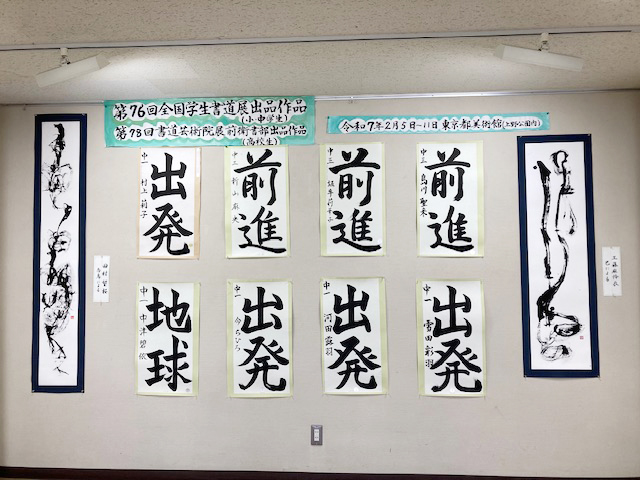 第76回全国学生書道展出品作品
(小・中学生)
第78回書道芸術院展前衛書部出品作品
(高校生)
令和7年2月5日~11日 東京都美術館(上野公園内)
出発
中一 村上 莉子
前進
中三
前進
中三
前進
中三
地球
中一 中津 碧依
出発
中一
出発
中一 河田 露羽
出発
中一 雪田 彩羽